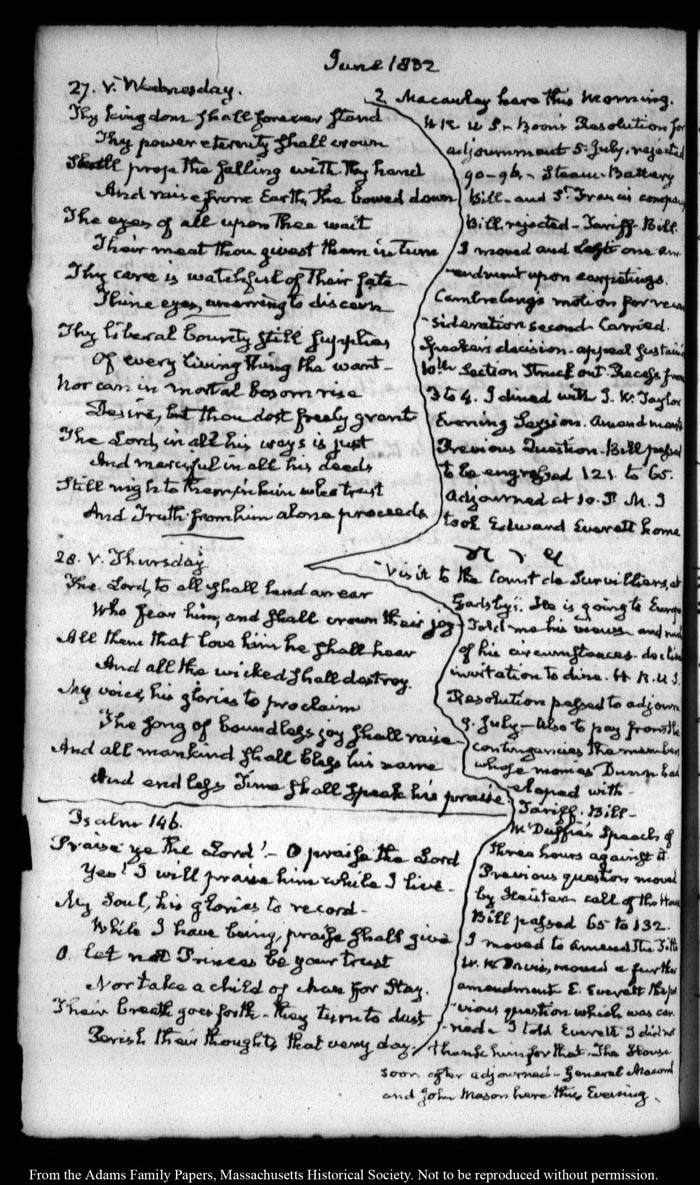 June 1832
27. V. Wednesday.
Thy kingdom shall forever stand
Thy power eternity shall crown
Shall prop the falling with thy hand
And raise from Earth, the bowed down
The eyes of all upon thee wait
Their meat thou givest them in turn
Thy care is watchful of their fate
Thine eyes, unerring to discern
Thy liberal bounty still supplies
Of every living thing the want
Nor can in mortal bosom rise
Desire, but thou dost freely grant
The Lord, in all his ways is just
And merciful in all his deeds
Still nigh to them in him who trust
And Truth from him alone proceeds
2 Macaulay here this Morning.
H R U S. Boon's Resolution for
adjournment 5. July. rejected
90-96. Steam Battery
Bill and St. Francis company
Bill rejected - Tariff Bill.
I moved and lost one am-
-endment upon carpetings.
Cambreleng's motion for recon
sideration second - Carried.
Speaker's decision - appeal sustain
10th Section Struck out. Recess from
3 to 4. I dined with J. W. Taylor
Evening Session. Amendments
Previous Question. Bill passed
to be engrossed 121. to 65.
Adjourned at 10. P. M. I
took Edward Everett home
28. V. Thursday
The Lord, to all shall lend an ear
Who fear him, and shall crown their joy
All them that love him he shall hear
And all the wicked shall destroy.
My voice, his glories to proclaim
The song of boundless joy shall raise
And all mankind shall bless his name
And endless Time shall speak his praise
Visit to the Count de Survilliers, at
Gadsby's. He is going to Europe
Told me his views and much
of his circumstances. declined
invitation to dine. H. R. U. S.
Resolution passed to adjourn
9. July - Also to pay from the
contingencies the members
whose monies Dunn had
eloped with -
Tariff. Bill -
McDuffie's Speech of
three hours against it.
Previous question moved
by call of the House
Bill passed 65 to 132.
I moved to amend the Title
W. R. Davis, moved a further
amendment E. Everett the pre
vious question which was car
ried - I told Everett I did not
thank him for that. The House
soon after adjourned - General Macomb
and John Mason here this Evening.
Psalm 146.
Praise ye the Lord! - O praise the Lord
Yes! I will praise him while I live -
My Soul, his glories to record -
While I have being, praise shall give
O. let not Princes be your trust
Nor take a child of man for Stay.
Their breath goes forth - they turn to dust
Perish their thoughts that very day.
From the Adams Family Papers, Massachusetts Historical Society. Not to be reproduced without permission.